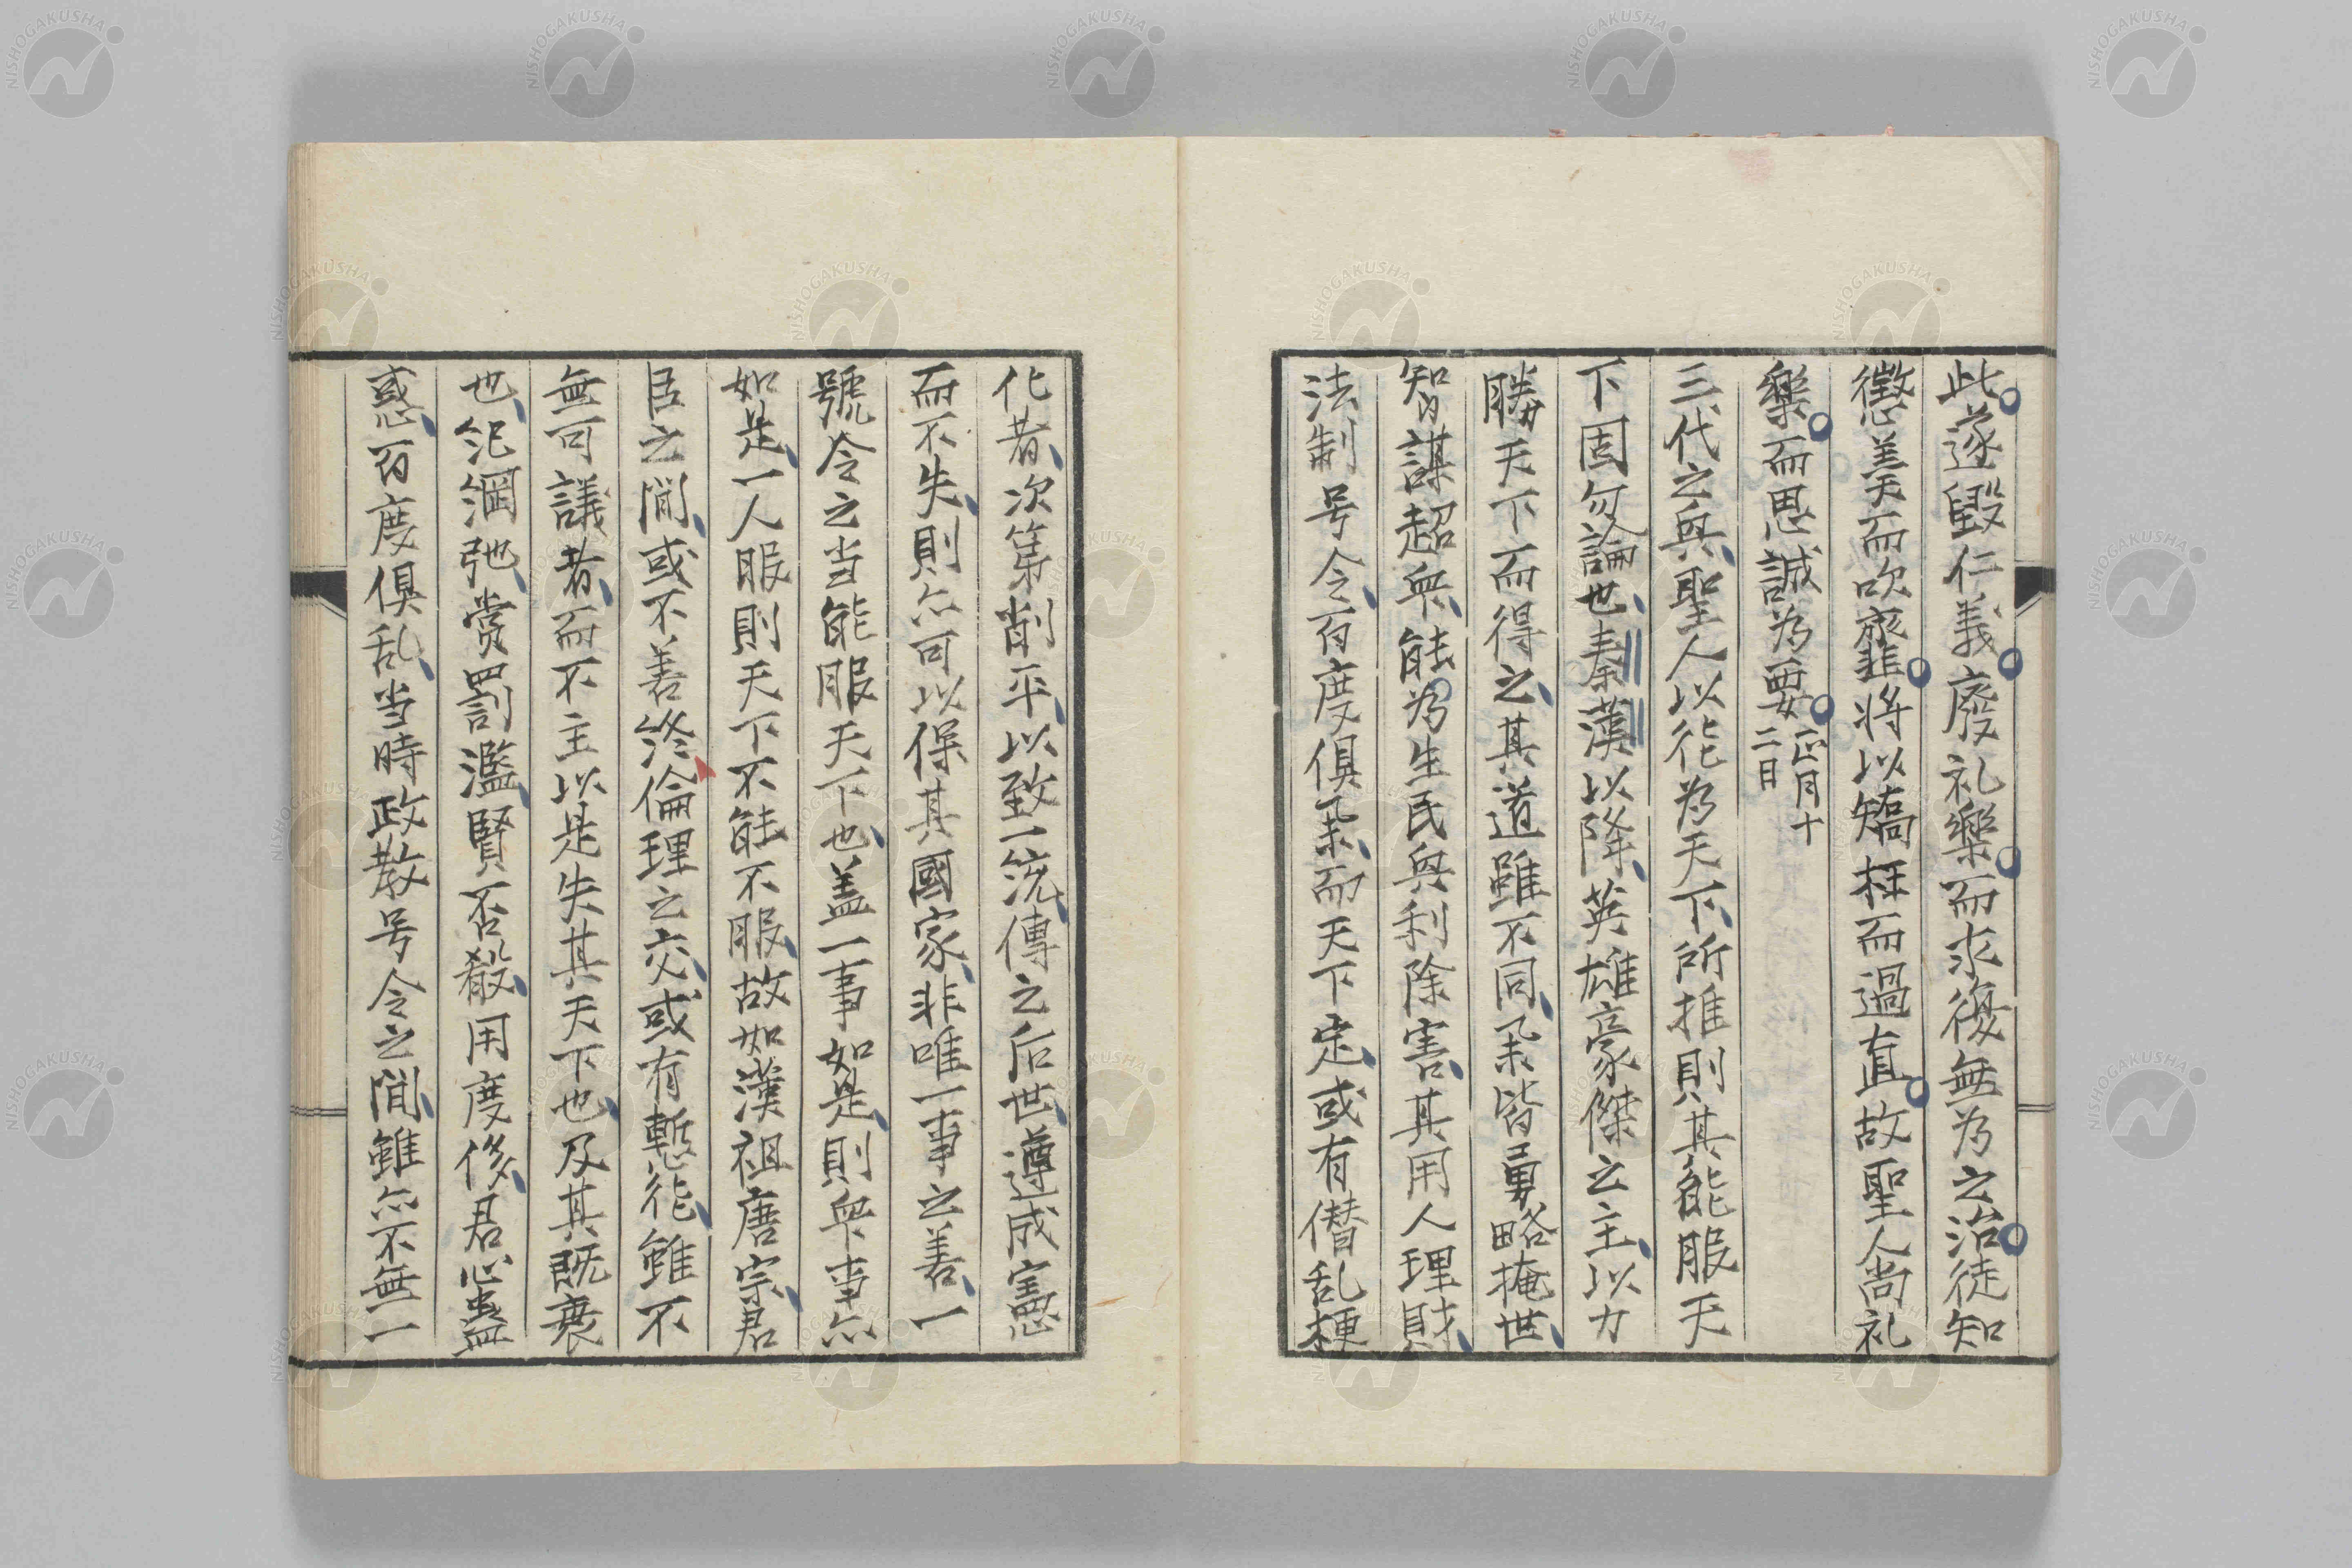 此遂毀仁義廢礼樂而求復無為之治徒知
懲羹而吹虀韭将以矯枉而過直故聖人尚礼
樂而思誠為要正月十二日
三代之興聖人以徳為天下所推則其能服天
下固勿論也秦漢以降英雄豪傑之主以力
勝天下而得之其道雖不同系皆勇略掩世
智謀超衆能為生民興利除害其用人理財
法制号令百度俱系而天下定或有僭乱梗
化者次第削平以致一統傳之后世遵成憲
而不失則亦可以保其國家非唯一事之善一
號令之当能服天下也盖一事如是則衆事亦
如是一人服則天下不能不服故如漢祖唐宗君
臣之間或不善終倫理之交或有慙徳雖不
無可議者而不主以是失其天下也及其既衰
也紀綱弛賞罰濫賢否殽用度侈君心蠱
惑百度俱乱当時政教号令之間雖亦不無一
NISHOGAKUSHA